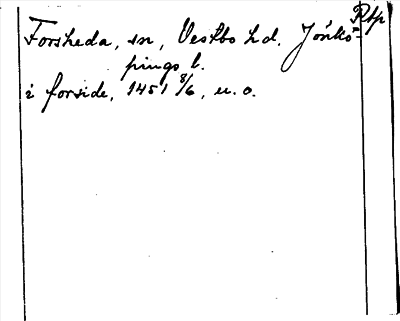 Rtp
Forsheda, sn, Vestbo hd. Jönkö-
pings l.
i forside, 1451 8/6, u. o.